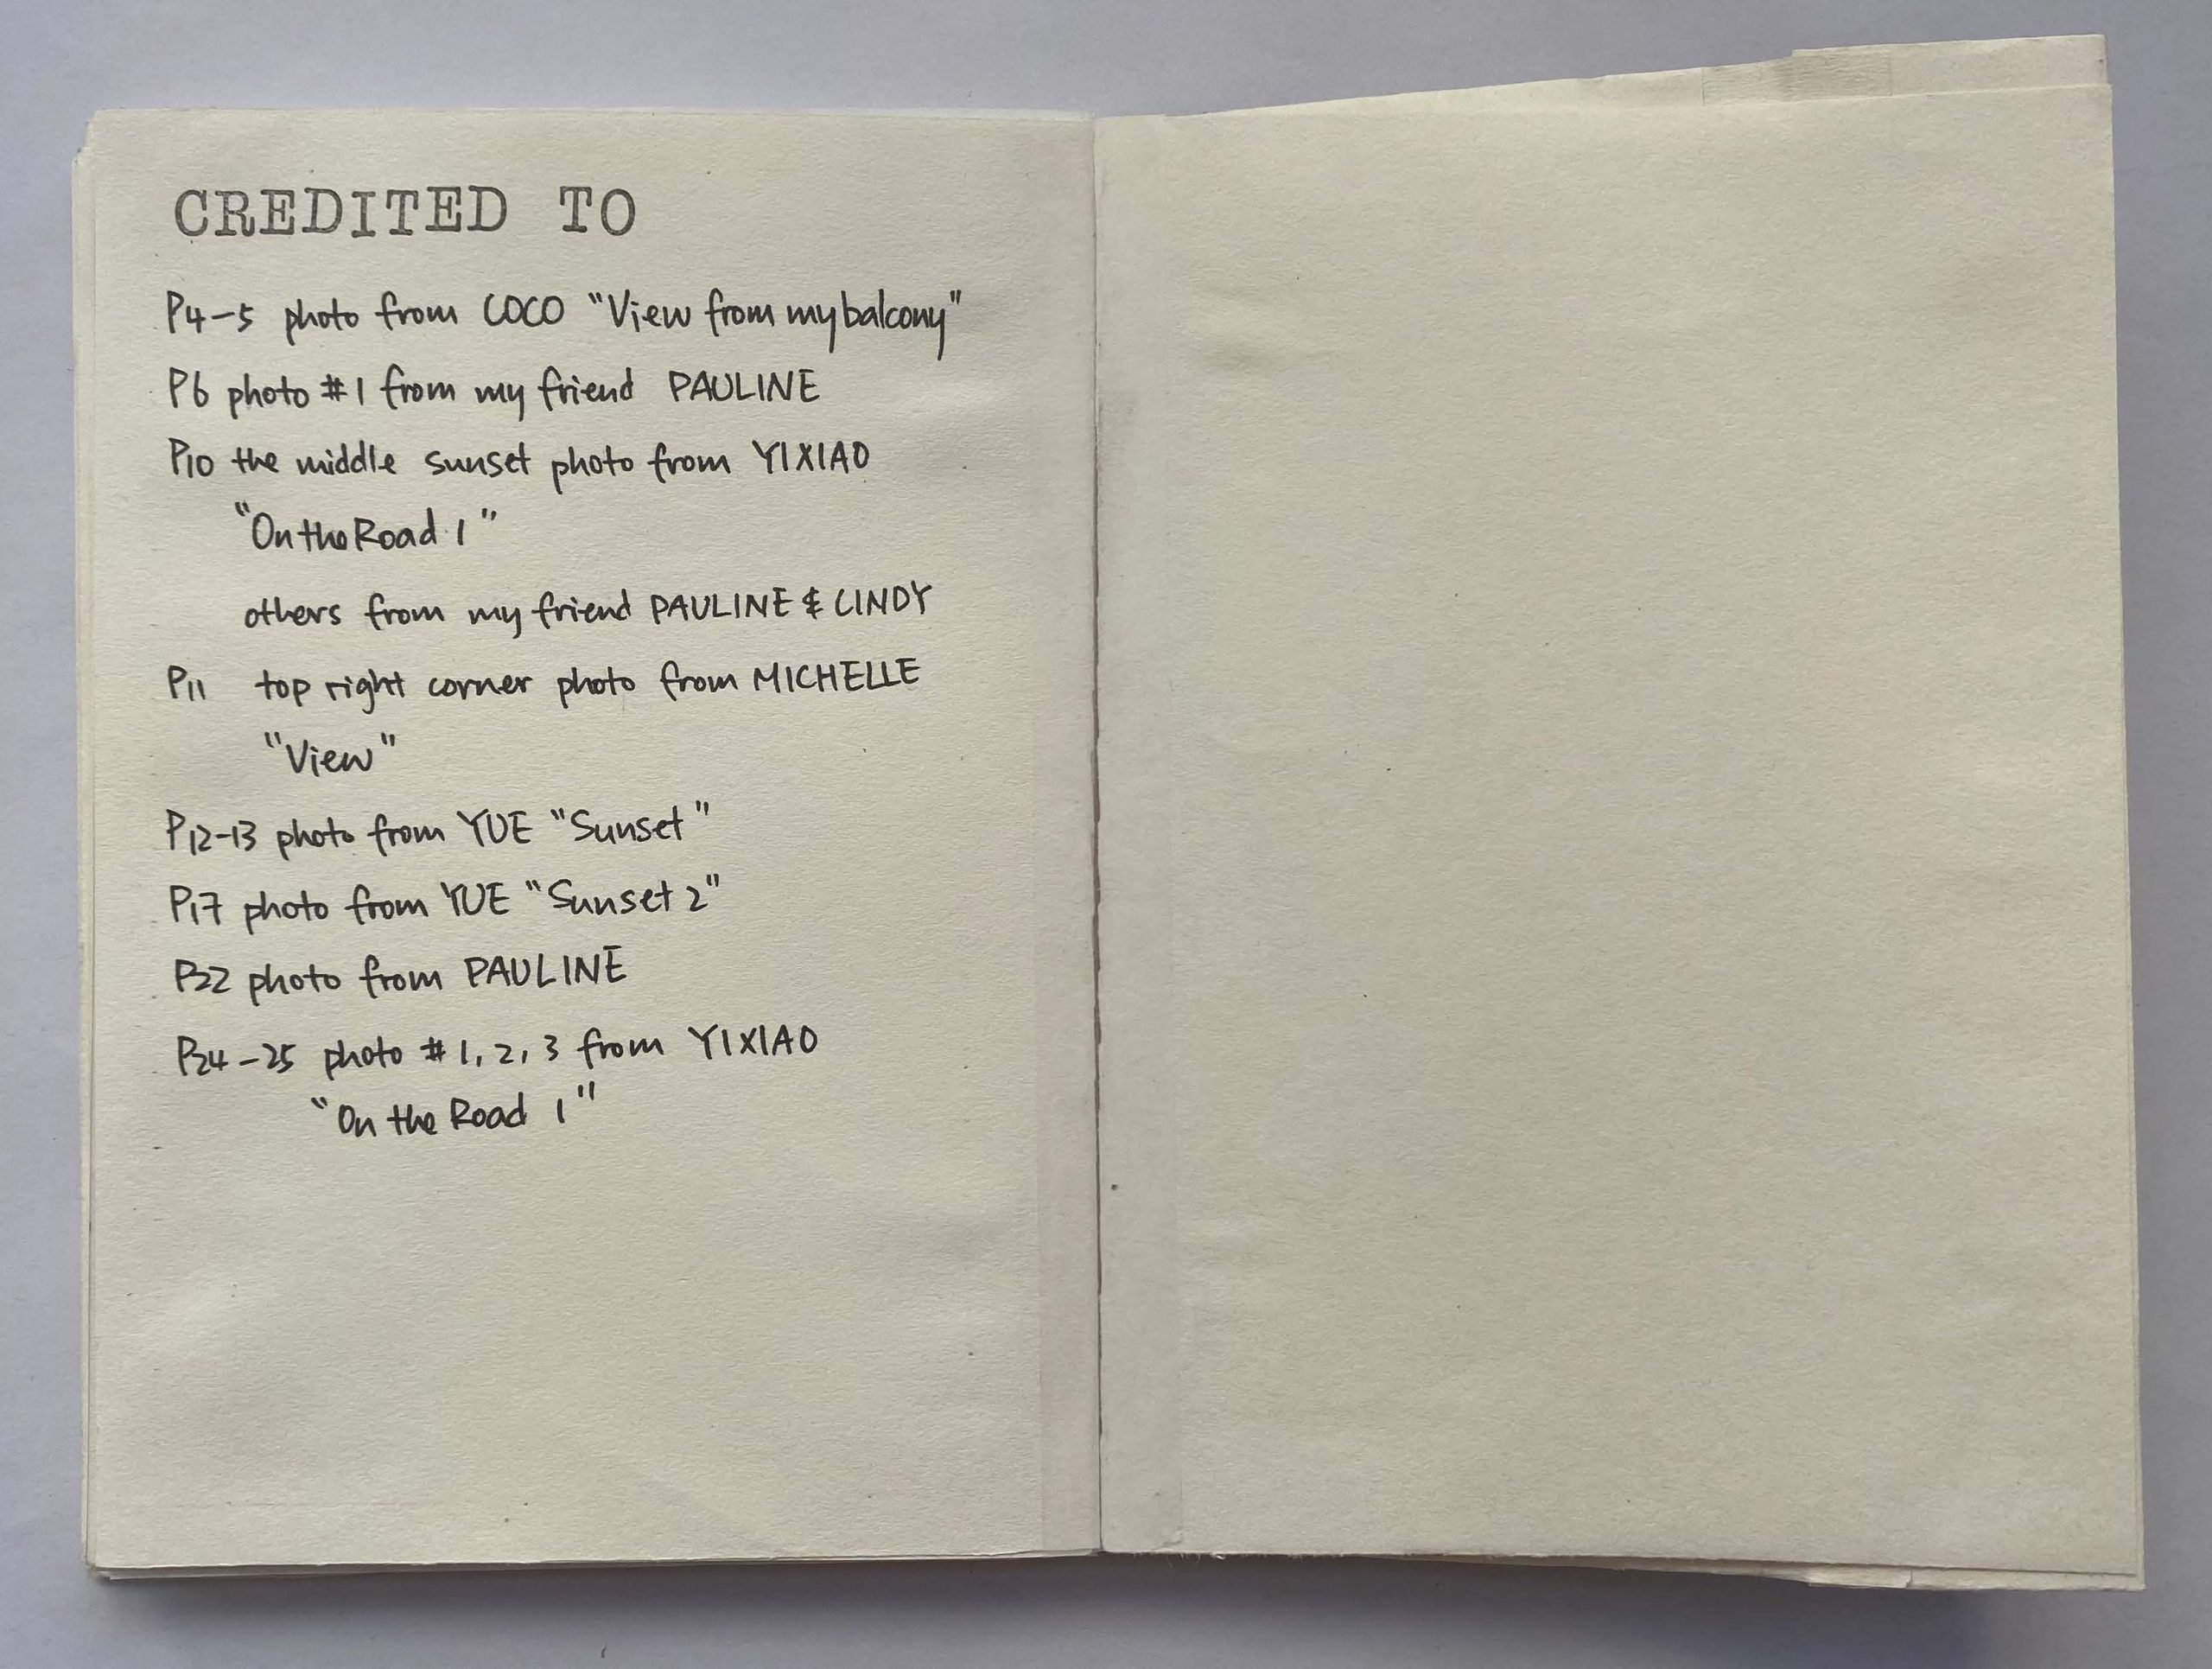 CREDITED TO
P4-5 photo from COCO "View from my balcony"
P6 photo #1 from my friend PAULINE
P10 the middle sunset photo from YIXIAO
"On the Road 1"
others from my friend PAULINE & CINDY
P11 top right corner photo from MICHELLE
"View"
P12-13 photo from YUE "Sunset"
P17 photo from YUE "Sunset 2"
P22 photo from PAULINE
P24-25 photo #1, 2, 3 from YIXIAO
"On the Road 1"